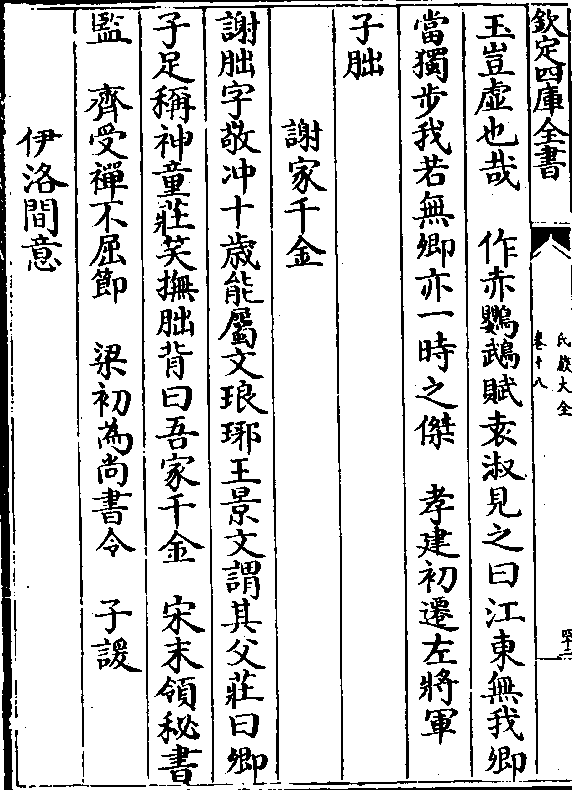 欽定四庫全書
氏族大全
卷十八
四十二
玉豈虛也哉　作赤鸚鵡賦袁淑見之曰江東無我卿
當獨步我若無卿亦一時之傑　孝建初遷左將軍
子朏
謝家千金
謝朏字敬冲十歲能屬文琅琊王景文謂其父莊曰卿
子足稱神童莊笑撫朏背曰吾家千金　宋末領秘書
監　齊受禪不屈節　梁初為尚書令　子諼
伊洛間意